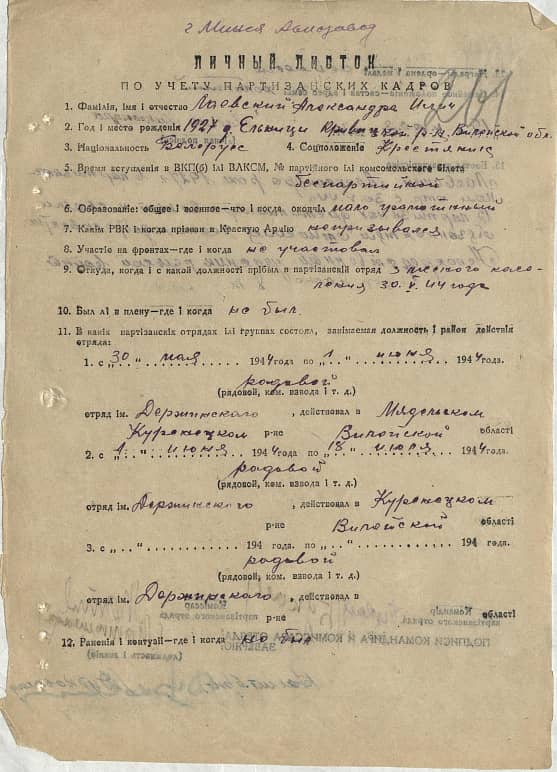 г Минск Автозавод
ЛИЧНЫЙ ЛИСТОК
ПО УЧЕТУ ПАРТИЗАНСКИХ КАДРОВ
1. Фамілія, імя і отчество Лоевский Александра Илич
2. Год і место рождения 1927 д. Ельницы Кривицкой р-н Вилейской обл
3. Національность Белорус 4. Соцположение Крестянин
5. Время вступления в ВКП(б) ілі ВЛКСМ, № партійного ілі комсомольского білета
беспартийной
6. Образование: общее і военное—что і когда окончіл мало грамотный
7. Какім РВК і когда прізван в Красную Армію непризывался
8. Участіе на фронтах—где і когда не участвовал
9. Откуда, когда і с какой должності прібыл в партізанскій отряд з местного насе-
ления 30. V. 44 года
10. Был лі в плену—где і когда не был.
11. В какіх партізанскіх отрядах ілі группах состоял, занімаемая должность і район действія
отряда:
1. с „30„ мая 1944 года по „1„ июня 1944 года
родовой
(рядовой, ком. взвода і т. д.)
отряд ім. Держинского, действовал в Мядельском
Куренецком р-не Вилейской області
2. с „1„ июня 1944 года по „18„ июля 1944 года.
родовой
(рядовой, ком. взвода і т. д.)
отряд ім. Держинского, действовал в Куренецком
р-не Вилейской області
3. с „..„ 194 года. по „..„ 194 года.
родовой
(рядовой, ком. взвода і т. д.)
отряд ім. Держинского, действовал в
р-не області
12. Раненія і контузіі—где і когда не был